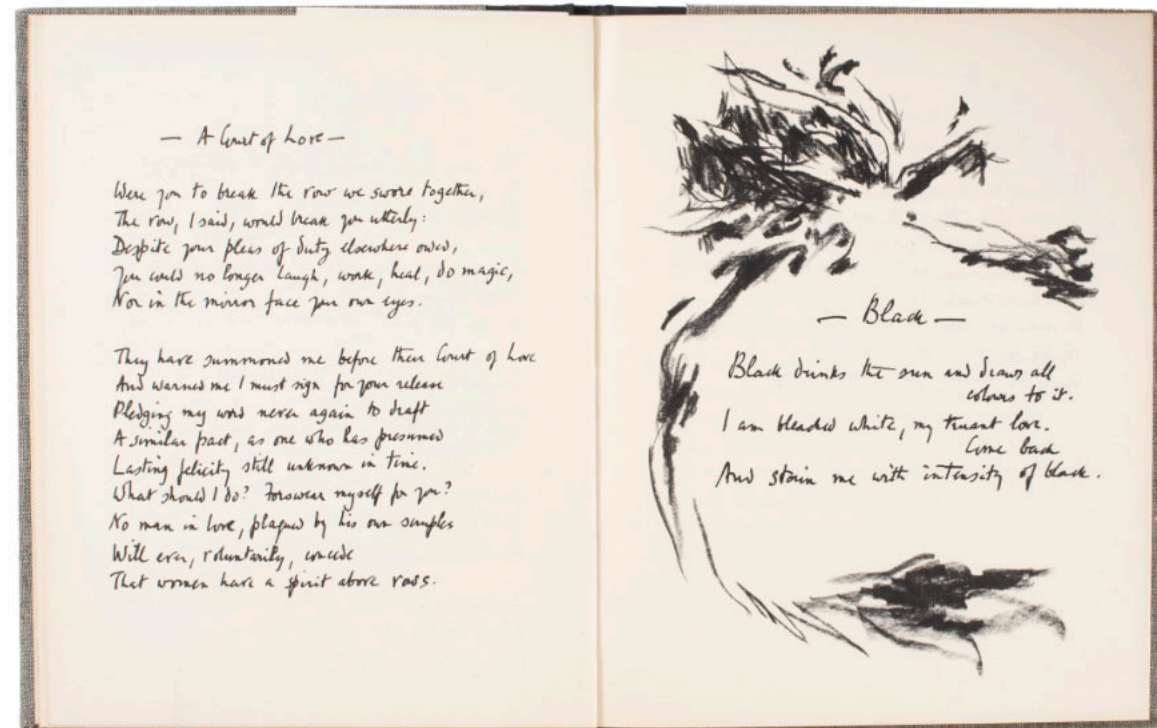 — A Court of Love —
Were you to break the vow we swore together,
The vow, I said, would break you utterly:
Despite your pleas of duty elsewhere owed,
You could no longer laugh, work, heal, do magic,
Nor in the mirror face your own eyes.
They have summoned me before their Court of Love
And warned me I must sign for your release
Pledging my word never again to draft
A similar pact, as one who has presumed
Lasting felicity still unknown in time.
What should I do? Forswear myself for you?
No man in love, plagued by his own scruples
Will ever, voluntarily, concede
That women have a spirit above vows.
— Black —
Black drinks the sun and draws all
colours to it.
I am bleached white, my truant love.
Come back
And stain me with intensity of black.